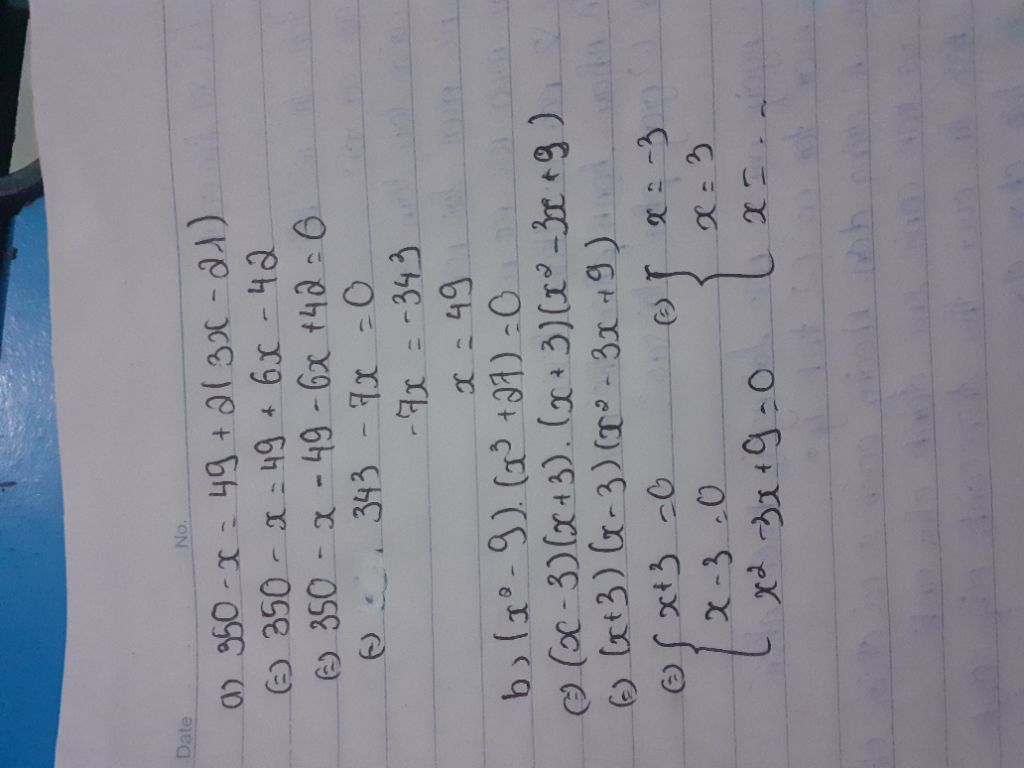 Date No.
a) 350 - x = 49 + 2(3x - 21)
(=) 350 - x = 49 + 6x - 42
(=) 350 - x - 49 - 6x + 42 = 0
(=) 343 - 7x = 0
-7x = -343
x = 49
b) (x² - 9).(x³ + 27) = 0
(=) (x - 3)(x + 3).(x + 3)(x² - 3x + 9)
(=) (x + 3)(x - 3)(x² - 3x + 9)
(=) { x + 3 = 0 (=) { x = -3
x - 3 = 0 x = 3
x² - 3x + 9 = 0 x = - -